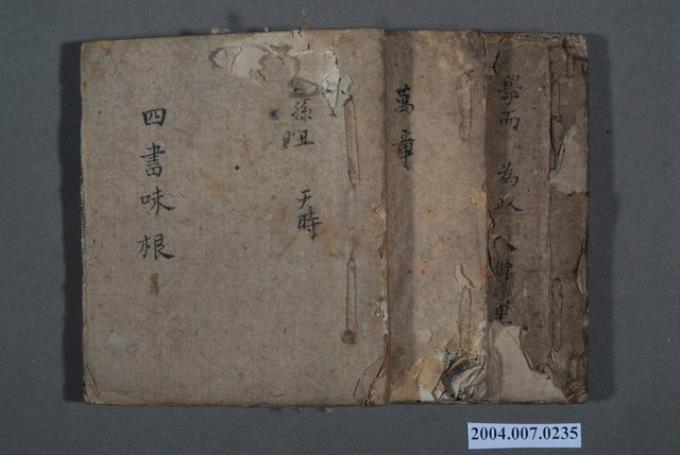 學而 為政 八佾 里
萬章
孫丑 天時
四書味根
2004.007.0235